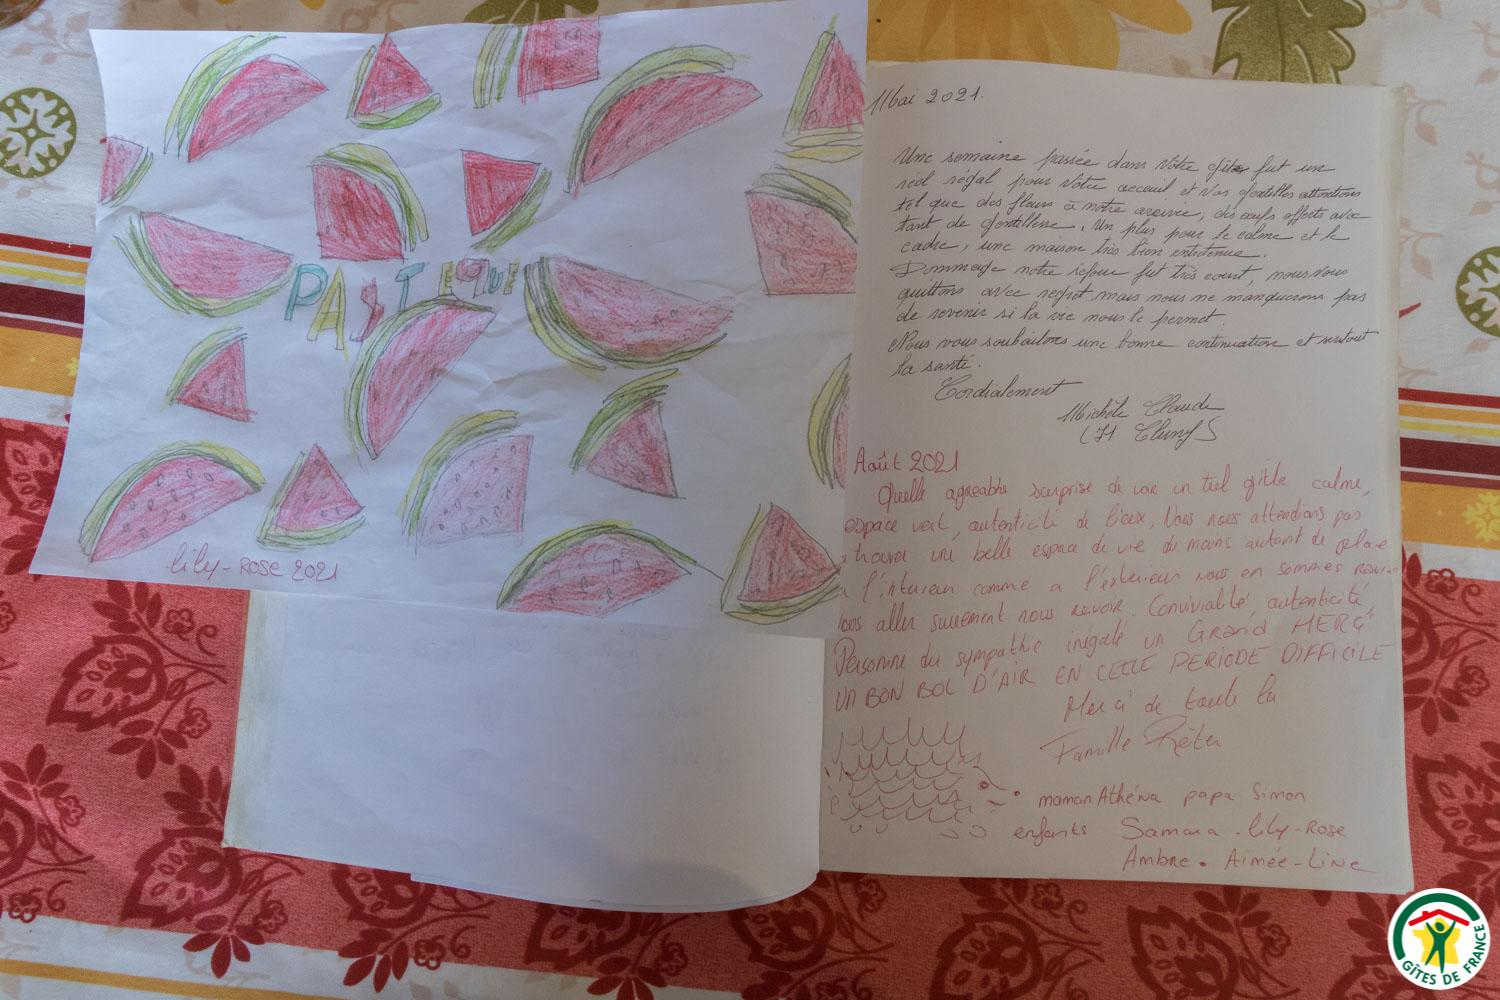 PASTEQUE
lily-Rose 2021
Mai 2021.
Une semaine passée dans Votre gîte fut un
réel régal pour Votre acceuil et Vos gentilles attentions
tel que des fleurs à notre arrivée, des œufs offerts avec
tant de gentillesse. Un plus pour le calme et le
cadre, une maison très bien entretenue.
Dommage notre séjour fut très court, nous Vous
quittons avec regret mais nous ne manquerons pas
de revenir si la vie nous le permet.
Nous vous souhaitons une bonne continuation et surtout
la santé.
Cordialement
Michèle Claude
(71 Cluny)
Août 2021
Quelle agréable surprise de voir un tel gîte calme,
espace vert, autenticité de lieux. Nous nous attendions pas
a trouver un belle espace de vie du moins autant de place
a l'interieur comme a l'exterieur nous en sommes ravis
vous aller surement nous revoir. Convivialité, autenticité
Personne du sympathie inégalé un Grand MERCI
UN BON BOL D'AIR EN CETTE PERIODE DIFFICILE
Merci de toute la
Famille
maman Athéna papa Simon
enfants Samara - lily-Rose
Ambre. Aimée-Line
GÎTES DE FRANCE